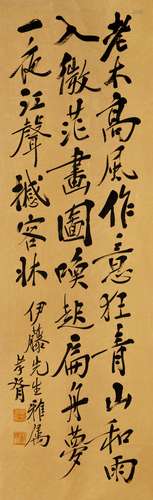 老木高風作意狂青山和雨
入微茫畫圖喚起扁舟夢
一夜江聲撼客牀
伊藤先生雅屬
孝胥